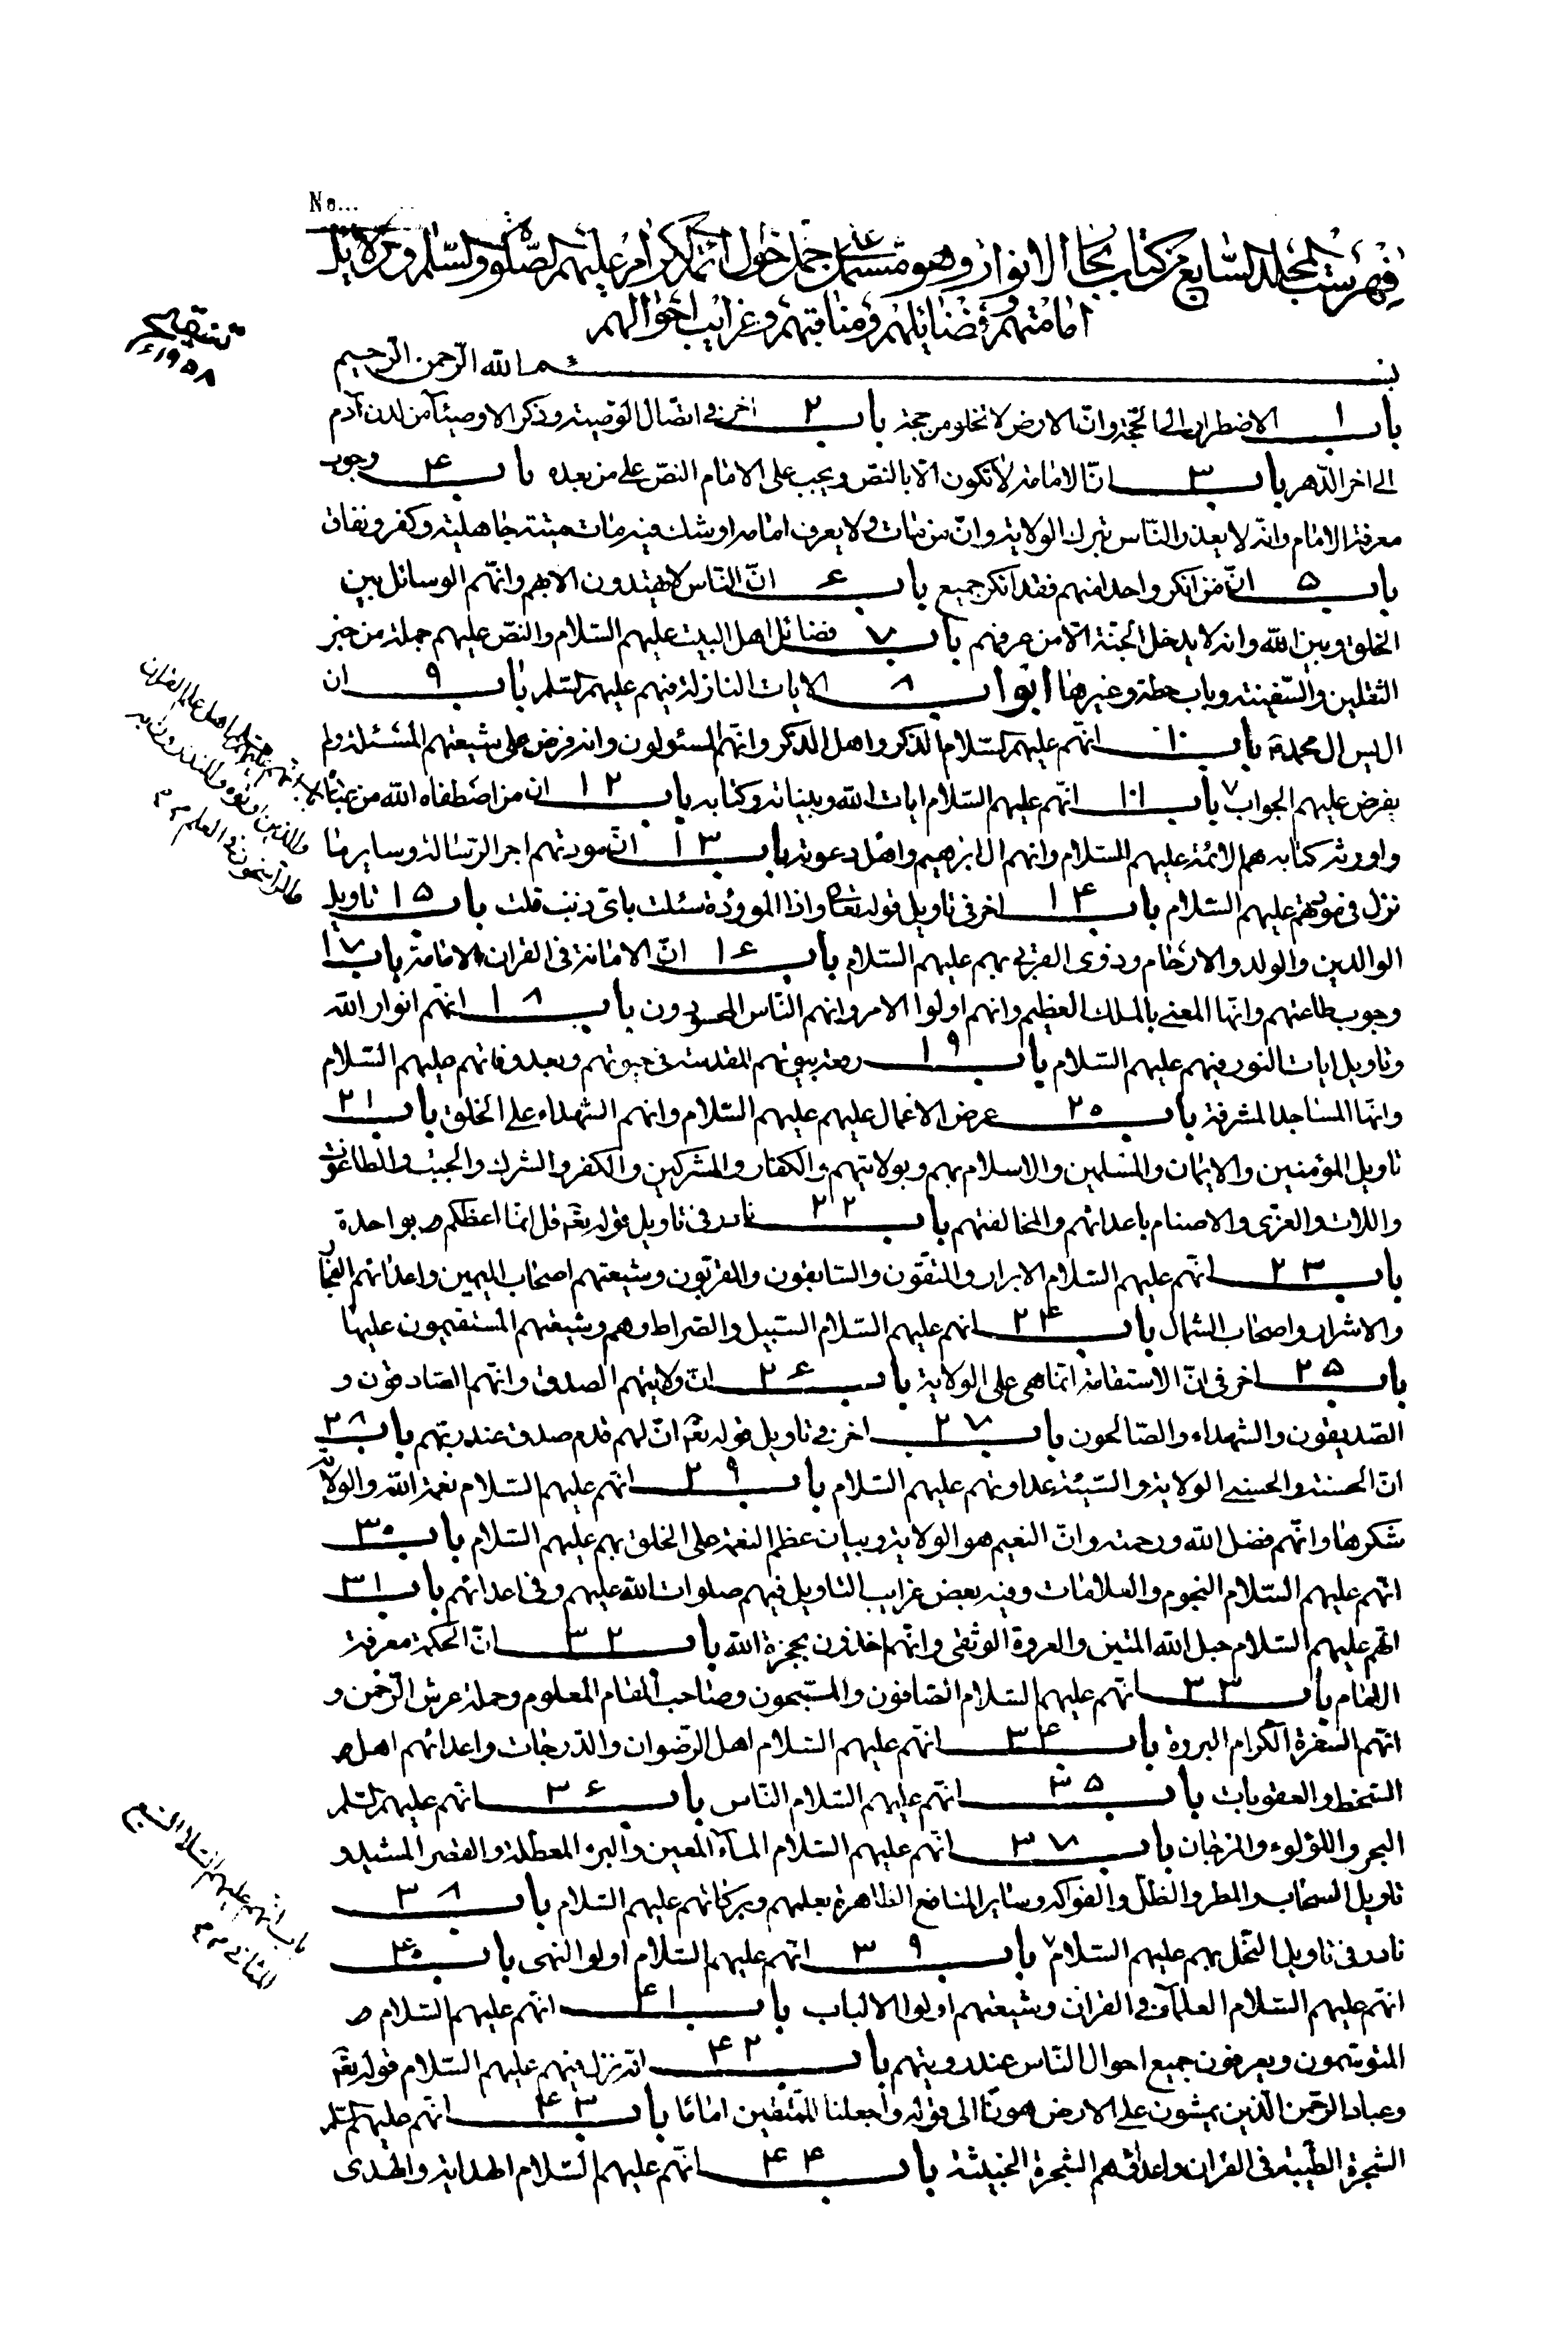 No...
فهرست المجلد السابع من كتاب بحار الانوار وهو مشتمل على جمل احوال الائمة الكرام عليهم الصلوة والسلام ودلائل
امامتهم وفضائلهم ومناقبهم وغرايب احوالهم
بسم الله الرحمن الرحيم
باب ١ الاضطرار الى الحجّة وانّ الارض لا تخلو من حجة باب ٢ اخر فى اتصال الوصية وذكر الاوصيآء من لدن آدم
الى اخر الدّهر باب ٣ انّ الامامة لا تكون الّا بالنصّ ويجب على الامام النصّ على من بعده باب ۴ وجوب
معرفة الامام وانّه لا يعذر النّاس بترك الولاية وانّ من مات ولا يعرف امامه او شك فيه مات ميتة جاهلية وكفر ونفاق
باب ۵ انّ من انكر واحدا منهم فقد انكر جميع باب ۶ انّ النّاس لا يهتدون الا بهم وانّهم الوسائل بين
الخلق وبين الله وانه لا يدخل الجنّة الّا من عرفهم باب ٧ فضائل اهل البيت عليهم السّلام والنصّ عليهم جملة من خبر
الثقلين والسّفينة وباب حطة وغيرها ابواب ٨ الايات النازلة فيهم عليهم السّلم باب ٩ ان
ال يس ال محمد باب ١٠ انّهم عليهم السّلام الذكر واهل الذكر وانّهم المسئولون وانه فرض على شيعتهم المسئلة ولم
يفرض عليهم الجواب باب ١١ انّهم عليهم السّلام ايات الله وبيناته وكتابه باب ١٢ ان من اصطفاه الله من عباده
واورثه كتابه هم الائمّة عليهم السّلام وانهم ال ابرهيم واهل دعوته باب ١٣ انّ مودتهم اجر الرّسالة وساير ما
نزل فى مودتهم عليهم السّلام باب ١۴ اخر فى تاويل قوله تعالى واذا الموؤدة سئلت باىّ ذنب قتلت باب ١۵ تاويل
الوالدين والولد والارحام وذوى القربى بهم عليهم السّلام باب ١۶ انّ الامانة فى القران الامامة باب ١٧
وجوب طاعتهم وانّها المعنى بالملك العظيم وانهم اولوا الامر وانهم النّاس المحسودون باب ١٨ انّهم انوار الله
وتاويل ايات النور فيهم عليهم السّلام باب ١٩ رفعة بيوتهم المقدسة فى حيوتهم وبعد وفاتهم عليهم السّلام
وانّها المساجد المشرفة باب ٢٠ عرض الاعمال عليهم عليهم السّلام وانهم الشهداء على الخلق باب ٢١
تاويل المؤمنين والايمان والمسلمين والاسلام بهم وبولايتهم والكفار والمشركين والكفر والشرك والجبت والطاغوت
واللات والعزّى والاصنام باعدائهم والمخالفتهم باب ٢٢ نادر فى تاويل قوله تعالى قل انّما اعظكم بواحدة
باب ٢٣ انّهم عليهم السّلام الابرار والمتّقون والسّابقون والمقرّبون وشيعتهم اصحاب اليمين واعدائهم الفجّار
والاشرار واصحاب الشمال باب ٢۴ انهم عليهم السّلام السّبيل والصّراط وهم وشيعتهم المستقيمون عليها
باب ٢۵ اخر فى انّ الاستقامة انّما هى على الولاية باب ٢۶ انّ ولايتهم الصدق وانّهم الصّادقون و
الصّديقون والشهداء والصّالحون باب ٢٧ اخر فى تاويل قوله تعالى انّ لهم قدم صدق عند ربّهم باب ٢٨
انّ الحسنة والحسنى الولاية والسّيّئة عداوتهم عليهم السّلام باب ٢٩ انّهم عليهم السّلام نعمة الله والولاية
شكرها وانّهم فضل الله ورحمته وانّ النعيم هو الولاية وبيان عظم النعمة على الخلق بهم عليهم السّلام باب ٣٠
انّهم عليهم السّلام النجوم والعلامات وفيه بعض غرايب التاويل فيهم صلوات الله عليهم وفى اعدائهم باب ٣١
انّهم عليهم السّلام حبل الله المتين والعروة الوثقى وانّهم اخذون بحجزة الله باب ٣٢ انّ الحكمة معرفة
الامام باب ٣٣ انّهم عليهم السّلام الصّافون والمسبّحون وصاحب المقام المعلوم وحملة عرش الرّحمن و
انّهم السّفرة الكرام البررة باب ٣۴ انّهم عليهم السّلام اهل الرّضوان والدّرجات واعدائهم اهل
السّخط والعقوبات باب ٣۵ انّهم عليهم السّلام النّاس باب ٣۶ انّهم عليهم السّلم
البحر واللؤلوء والمرجان باب ٣٧ انّهم عليهم السّلام المآء المعين والبئر المعطلة والقصر المشيد و
تاويل السّحاب والمطر والظلّ والفواكه وساير المنافع الظاهرة بعلمهم وبركاتهم عليهم السّلام باب ٣٨
نادر فى تاويل النّحل بهم عليهم السّلام باب ٣٩ انّهم عليهم السّلام اولوا النهى باب ۴٠
انّهم عليهم السّلام العلمآء فى القران وشيعتهم اولوا الالباب باب ۴١ انّهم عليهم السّلام
المتوسّمون ويعرفون جميع احوال النّاس عند رويتهم باب ۴٢ انّه نزل فيهم عليهم السّلام قوله تعالى
وعباد الرّحمن الّذين يمشون على الارض هونًا الى قوله واجعلنا للمتّقين امامًا باب ۴٣ انّهم عليهم السّلم
الشجرة الطّيبة فى القران واعدائهم الشجرة الخبيثة باب ۴۴ انّهم عليهم السّلام الهداية والهدى
تنقيح
١٩٥٨ء
باب انّهم عليهم السّلام اهل علم القران
والذين اوتوه والمنذرون به
والرّاسخون فى العلم
باب انّهم عليهم السّلام السّبع
المثانى